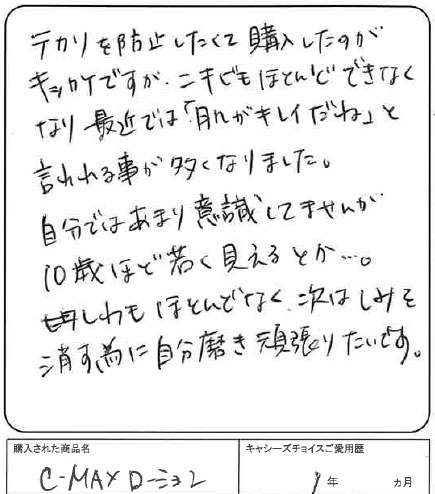 テカリを防止したくて購入したのが
キッカケですが、ニキビもほとんどできなく
なり最近では「肌がキレイだね」と
言われる事が多くなりました。
自分ではあまり意識してませんが
10歳ほど若く見えるとか…。
しわもほとんどなく、次はしみを
消す為に自分磨き頑張りたいです。
購入された商品名
キャシーズチョイスご愛用歴
C-MAXローション
1年 ヵ月